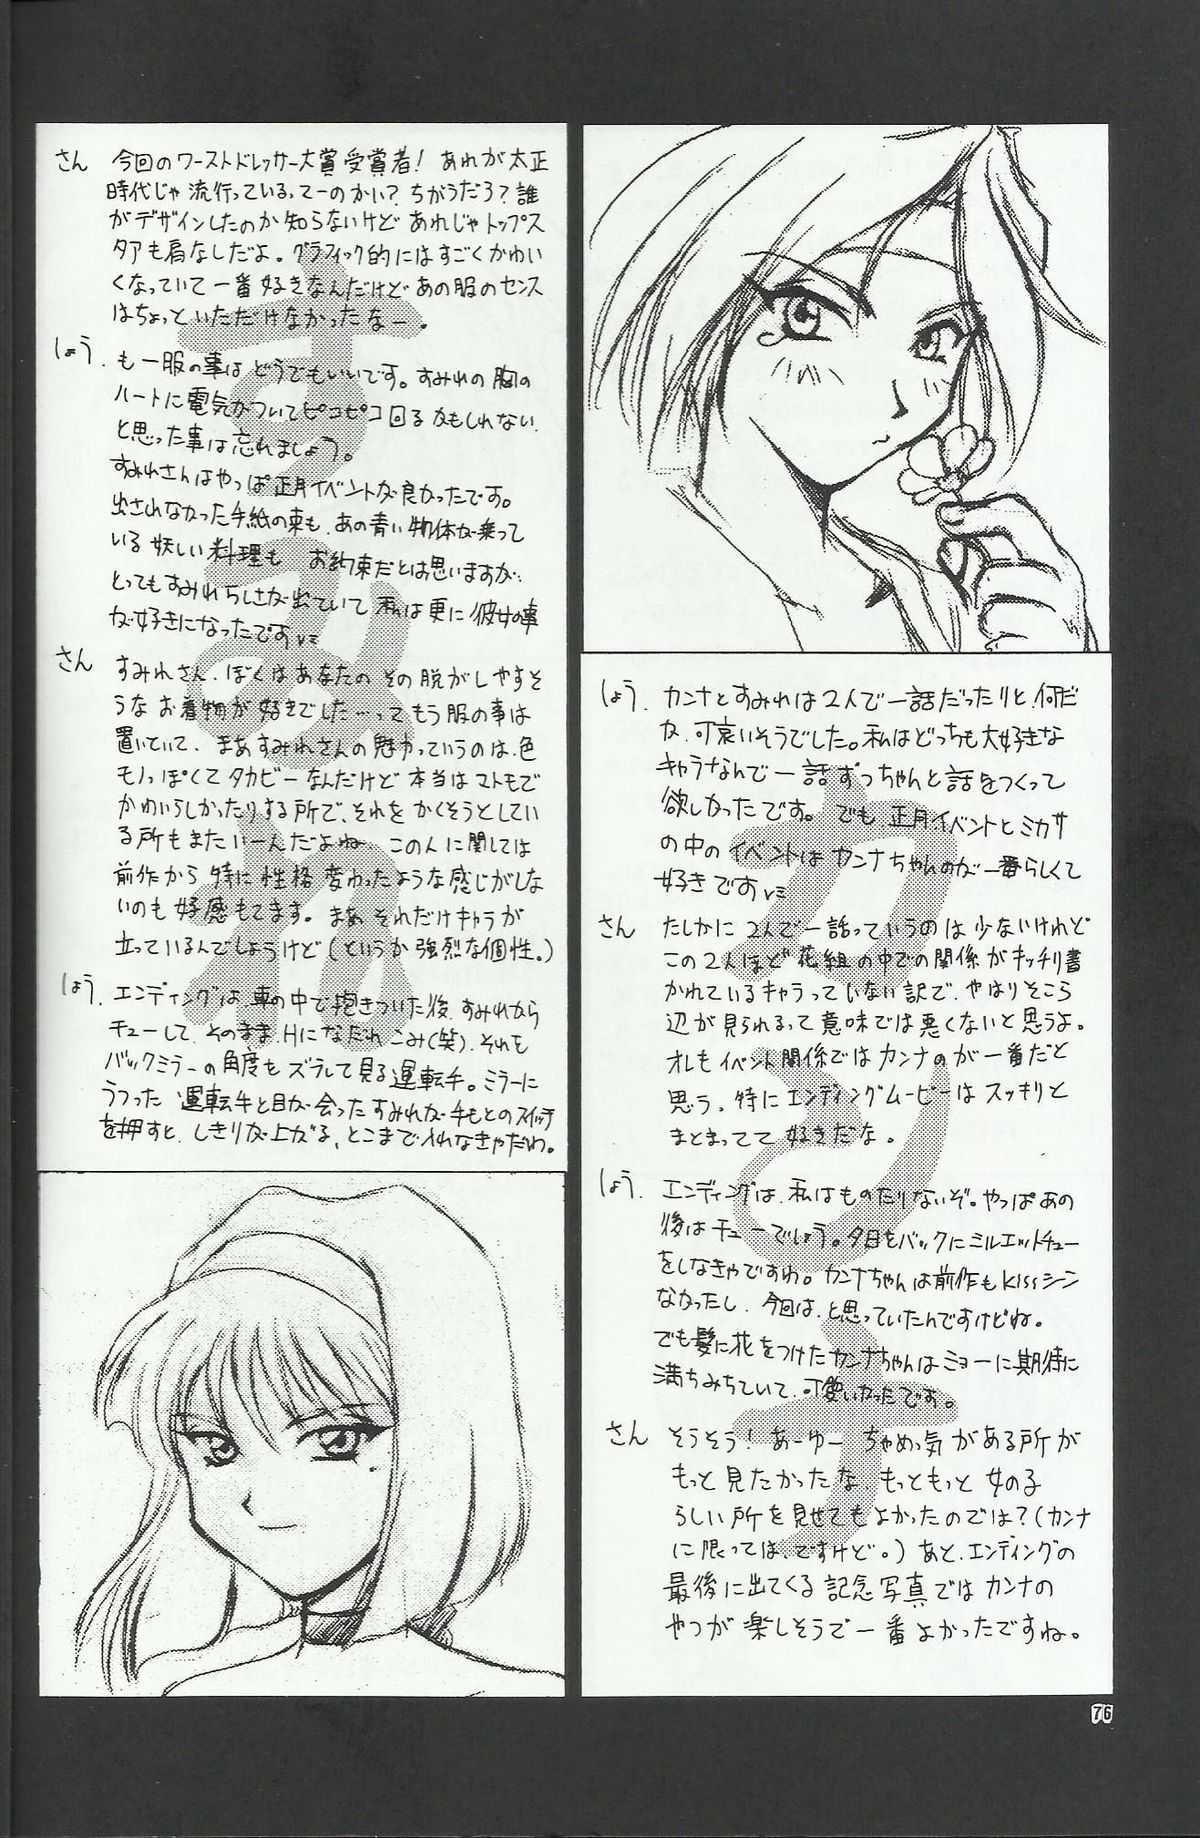 さん 今回のワーストドレッサー大賞受賞者! あれが太正
時代じゃ流行っている、ってーのかい?ちがうだろ?誰
がデザインしたのか知らないけどあれじゃトップス
タアも肩なしだよ。グラフィック的にはすごくかわい
くなっていて一番好きなんだけどあの服のセンス
はちょっといただけなかったなー。
しょう. もー服の事はどうでもいいです。すみれの胸の
ハートに電気がついてピコピコ回るかもしれない.
と思った事は忘れましょう。
すみれさんはやっぱ正月イベントが良かったです。
出されなかった手紙の束も、あの青い物体が乗って
いる妖しい料理も お約束だとは思いますが、
とってもすみれらしさが出ていて私は更に彼女の事
が好きになったです
さん すみれさん、ぼくはあなたのその脱がしやすそ
うなお着物が好きでした…ってもう服の事は
置いていて、まあすみれさんの魅力っていうのは、色
モノっぽくてタカビーなんだけど本当はマトモで
かわいらしかったりする所で、それをかくそうとしてい
る所もまたいーんだよね この人に関しては
前作から特に性格変わったような感じがしな
いのも好感もてます。まあそれだけキャラが
立っているんでしょうけど(というか強烈な個性。)
しょう. エンディングは、車の中で抱きついた後、すみれから
チューして、そのままHになだれこみ(笑). それを
バックミラーの角度をズラして見る運転手。ミラーに
うつった運転手と目が会ったすみれが手もとのスイッチ
を押すと、しきりが上がる、とこまで入れなきゃだわ。
しょう. カンナとすみれは2人で一話だったりと、何だ
か、可哀いそうでした。私はどっちも大好きな
キャラなんで一話ずっちゃんと話をつくって
欲しかったです。でも正月イベントとミカサ
の中のイベントはカンナちゃんのが一番らしくて
好きです
さん たしかに2人で一話っていうのは少ないけれど
この2人ほど花組の中での関係がキッチリ書
かれているキャラっていない訳で、やはりそこら
辺が見られるって意味では悪くないと思うよ。
オレもイベント関係ではカンナのが一番だと
思う。特にエンディングムービーはスッキリと
まとまってて好きだな。
しょう. エンディングは、私はものたりないぞ。やっぱあの
後はチューでしょう。夕日をバックにシルエットチュー
をしなきゃですわ。カンナちゃんは前作もkissシーン
なかったし、今回は、と思っていたんですけどね。
でも髪に花をつけたカンナちゃんはミョーに期待に
満ちみちていて、可愛いかったです。
さん そうそう!あーゆー ちゃめっ気がある所が
もっと見たかったな もっともっと女の子
らしい所を見せてもよかったのでは?(カンナ
に限っては、ですけど。)あと、エンディングの
最後に出てくる記念写真ではカンナの
やつが楽しそうで一番よかったですね。
すみれ
カンナ
76